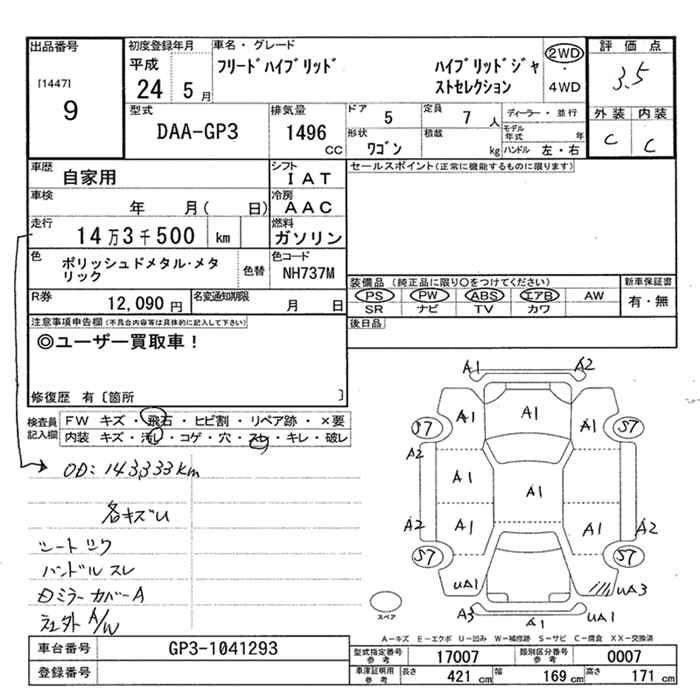 出品番号
[1447]
9
初度登録年月
平成
24 5月
車名・グレード
フリードハイブリッド
ハイブリッドジャ
ストセレクション
2WD
・
4WD
評価点
3.5
外装 内装
C C
型式
DAA-GP3
排気量
1496
CC
ドア
5
定員
7人
形状
ワゴン
積載
kg
ディーラー・並行
モデル
年式 年
ハンドル 左・右
車歴
自家用
シフト
IAT
車検
年 月( 日)
冷房
AAC
走行
14万3千500 km
燃料
ガソリン
色
ポリッシュドメタル・メタ
リック
色替
色コード
NH737M
R券
12,090円
名変通知期限
月 日
セールスポイント(正常に機能するものに限ります)
装備品 (純正品に限り○をつけてください)
PS PW ABS エアB AW
SR ナビ TV カワ
新車保証書
有・無
後日品
注意事項申告欄(不具合内容等は具体的に記入して下さい)
◎ユーザー買取車!
修復歴 有〔箇所 〕
検査員
記入欄
FW キズ・飛石・ヒビ割・リペア跡・×要
内装 キズ・汚レ・コゲ・穴・スレ・キレ・破レ
OD:143,333km
各キズU
シートシワ
ハンドルスレ
ロミラーカバーA
社外A/W
A1 A2
A1 A1 A1
S7 S7
A2
A1 A1 A1
A2 A1 A1 A2
S7 S7
UA1 UA3
A3 A1 UA1
スペア
A-キズ E-エクボ U-凹み W-補修跡 S-サビ C-腐食 XX-交換済
車台番号
GP3-1041293
登録番号
型式指定番号
参考
17007
類別区分番号
参考
0007
車庫証明用
参考
長さ
421 cm
幅
169 cm
高さ
171 cm